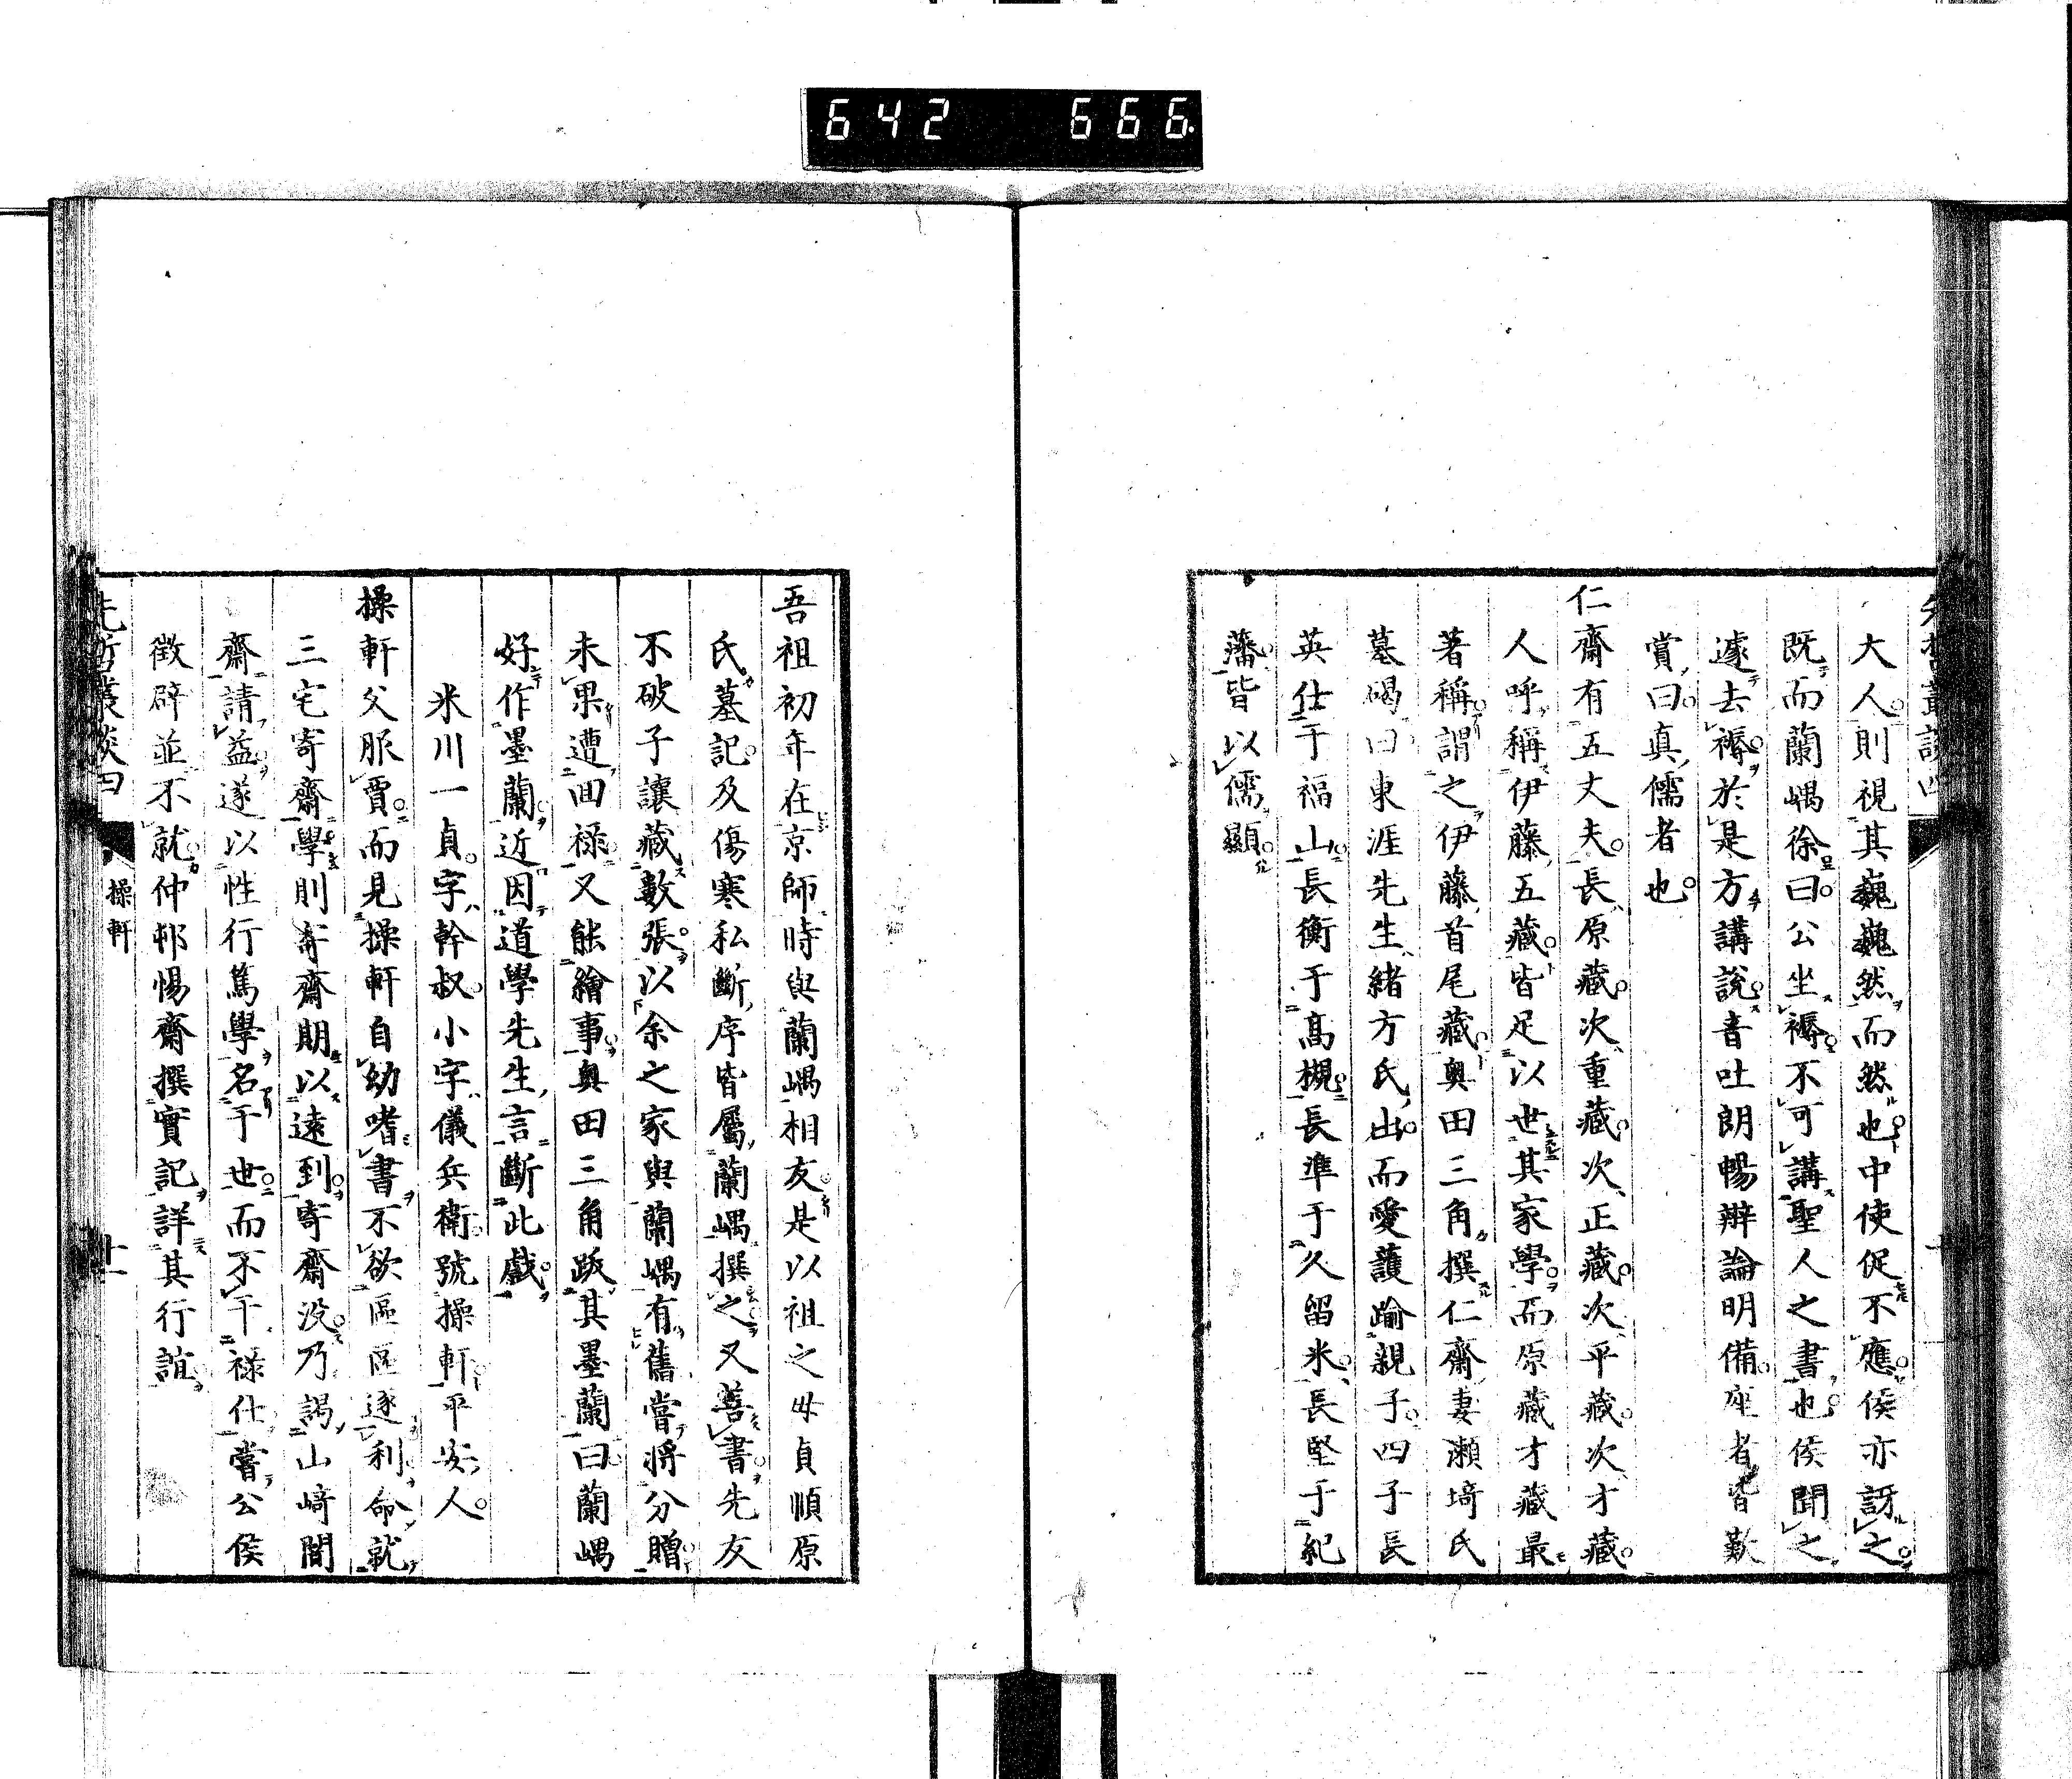 642 666
先哲叢談四
大人則視其巍巍然而然也中使促不應侯亦訝之
既而蘭嵎徐曰公坐褥不可講聖人之書也侯聞之
遽去褥於是方講說音吐朗暢辯論明備座者皆歎
賞曰真儒者也
仁齋有五丈夫長原藏次重藏次正藏次平藏次才藏
人呼稱伊藤五藏皆足以世其家學而原藏才藏最
著稱謂之伊藤首尾藏奧田三角撰仁齋妻瀨埼氏
墓碣曰東涯先生緒方氏出而愛護踰親子四子長
英仕于福山長衡于髙槻長準于久留米長堅于紀
藩皆以儒顯
吾祖初年在京師時與蘭嵎相友是以祖之母貞順原
氏墓記及傷寒私斷序皆屬蘭嵎撰之又善書先友
不破子讓藏數張以余之家與蘭嵎有舊嘗將分贈
未果遭囬祿又能繪事奧田三角跋其墨蘭曰蘭嵎
好作墨蘭近因道學先生言斷此戲
米川一貞字幹叔小字儀兵衞號操軒平安人
操軒父服賈而見操軒自幼嗜書不欲區區逐利命就
三宅寄齋學則寄齋期以遠到寄齋沒乃謁山﨑闇
齋請益遂以性行篤學名于世而不干祿仕嘗公侯
徵辟並不就仲邨惕齋撰實記詳其行誼
先哲叢談四
操軒